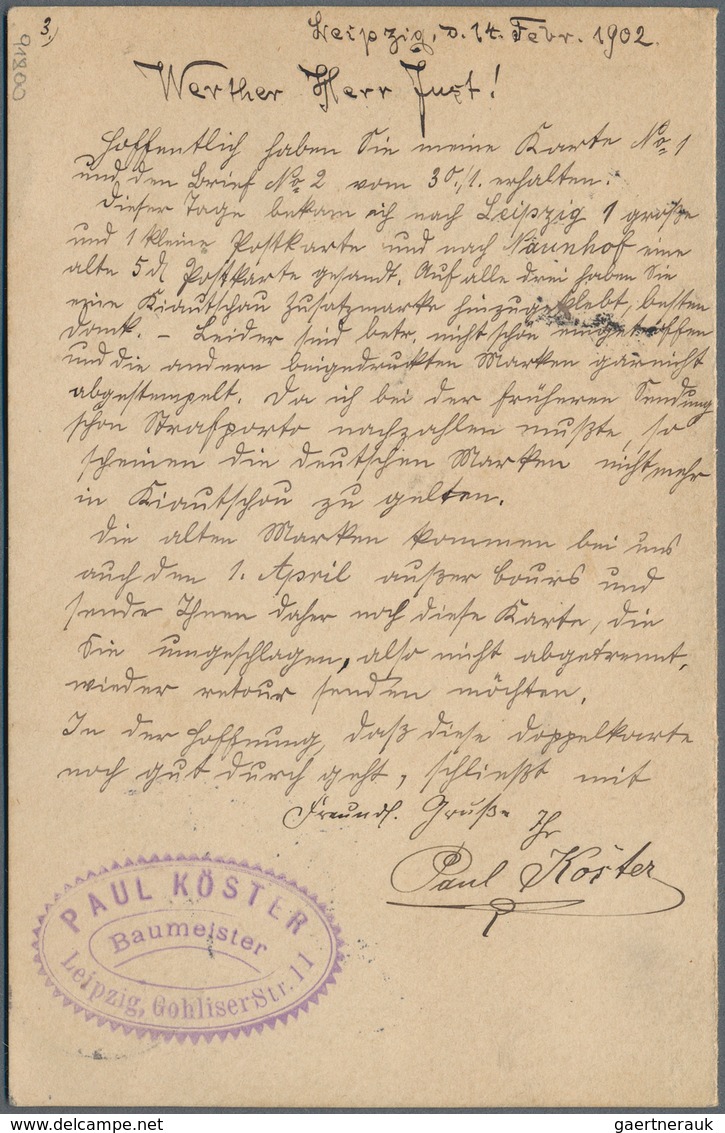 3.)
91800
Leipzig, d. 14. Febr. 1902.
Werther Herr Just!
Hoffentlich haben Sie meine Karte No 1
und den Brief No 2 vom 30./1. erhalten.
Dieser Tage bekam ich nach Leipzig 1 große
und 1 kleine Postkarte und nach Naunhof eine
alte 5 d Postkarte gesandt. Auf alle drei haben Sie
eine Kiautschau Zusatzmarke hinzugeklebt, besten
Dank. – Leider sind betr. nicht schön eingetroffen
und die andern beigedruckten Marken garnicht
abgestempelt. Da ich bei der früheren Sendung
schon Strafporto nachzahlen mußte, so
scheinen die deutschen Marken nicht mehr
in Kiautschou zu gelten.
Die alten Marken kommen bei uns
auch den 1. April außer Cours und
sende Ihnen daher noch diese Karte, die
Sie umgeschlagen, also nicht abgetrennt,
wieder retour senden möchten.
In der Hoffnung, daß diese Doppelkarte
noch gut durch geht, schließt mit
Freundl. Gruße Ihr
Paul Köster
PAUL KÖSTER
Baumeister
Leipzig, Gohliser Str. 11
gaertnerauk @ delcampe.net